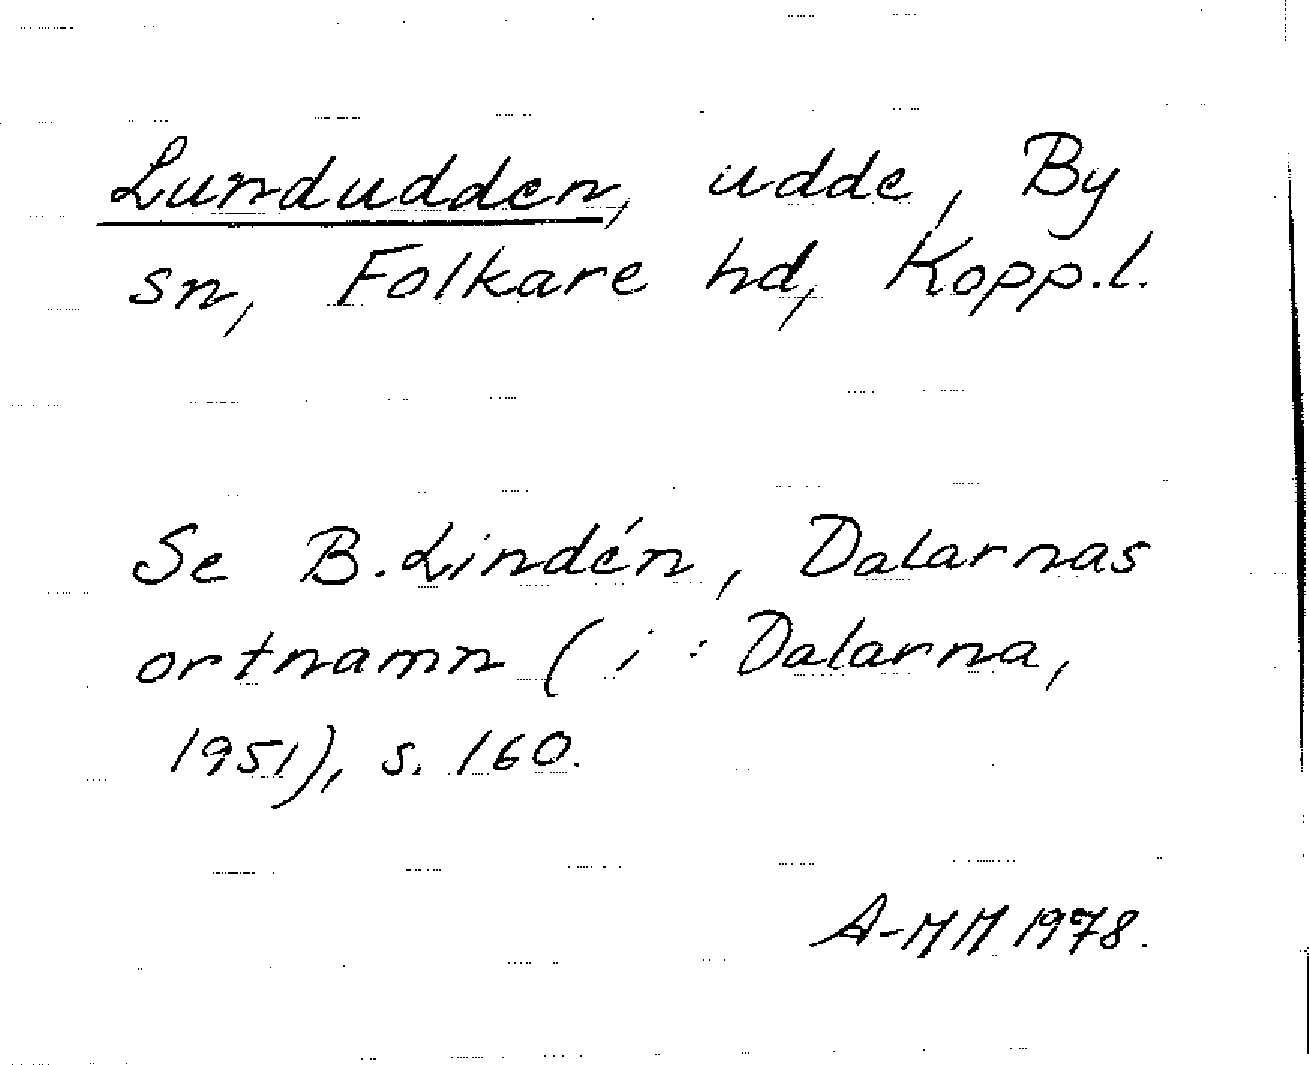 Lundudden, udde, By
sn, Folkare hd, Kopp.l.
Se B. Lindén, Dalarnas
ortnamn (i: Dalarna,
1951), s. 160.
A-MM 1978.